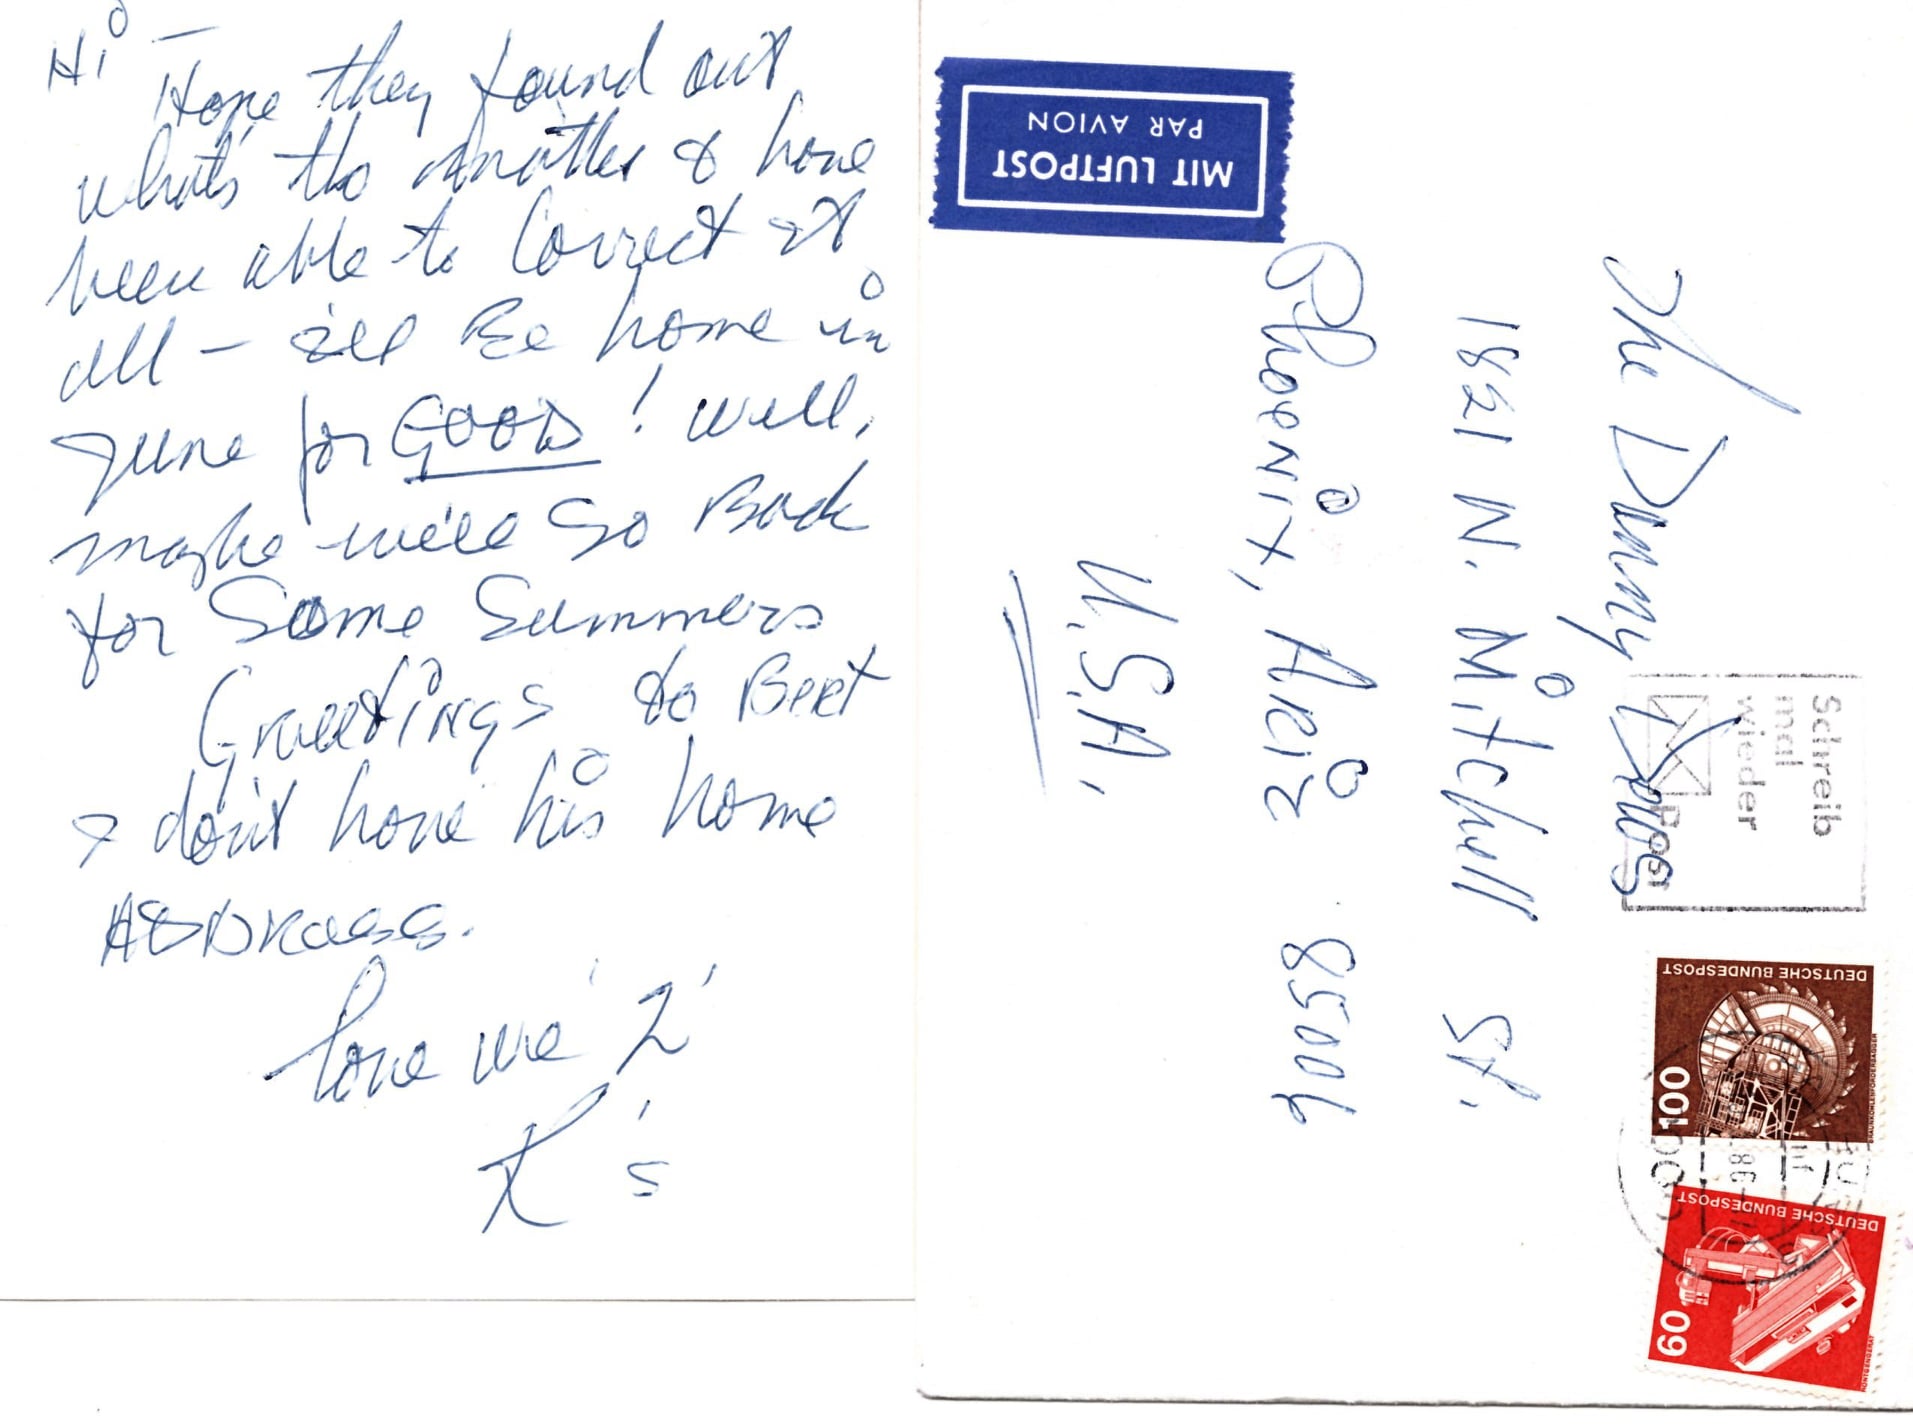 Hi —
Hope they found out
what's the matter & have
been able to correct it
all – I'll Be home in
June for GOOD! Well,
maybe we'll go Back
for Some Summers
Greetings to Bert
& don't have his home
ADDRess.
Love we '2'
K's
MIT LUFTPOST
PAR AVION
The Danny
1821 N. Mitchell St.
Phoenix, Ariz 85006
U.S.A.
Schreib
mal
wieder
Post
DEUTSCHE BUNDESPOST
100
BRAUNKOHLENFÖRDERBAGGER
DEUTSCHE BUNDESPOST
60
RÖNTGENGERÄT